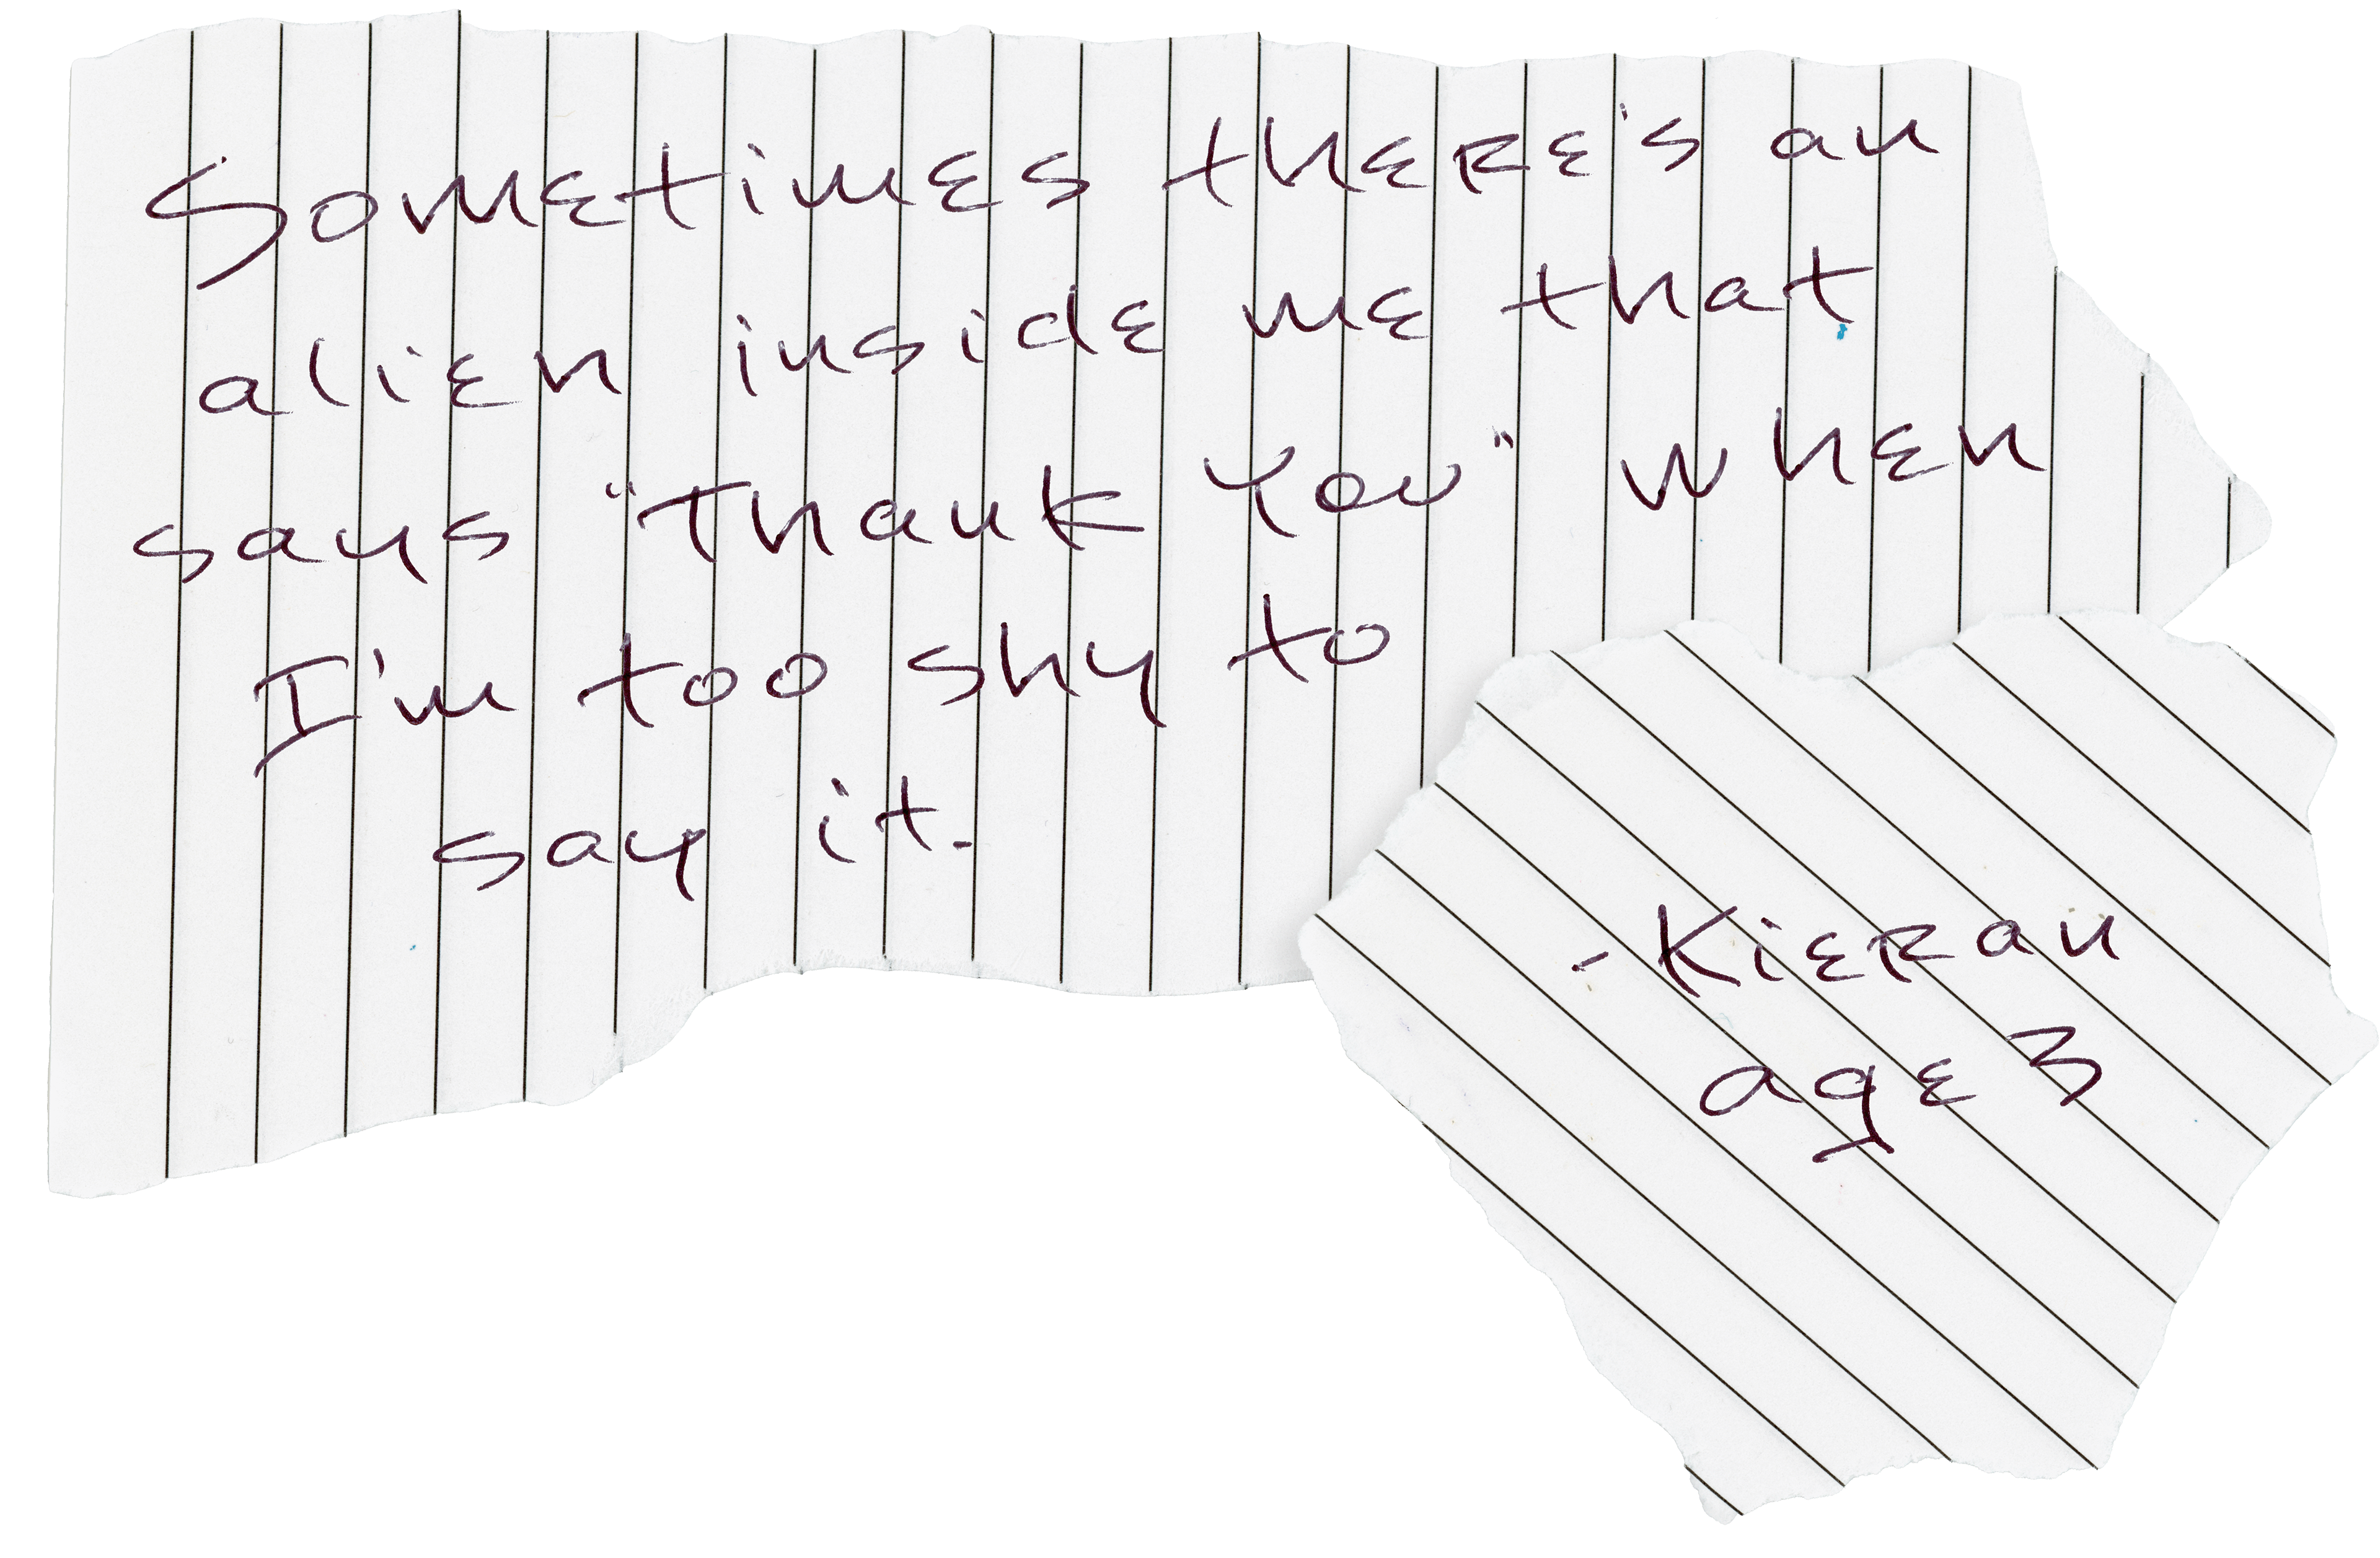 Sometimes there's an
alien inside me that
says "Thank You" when
I'm too shy to
say it.
- Kieran
age 3